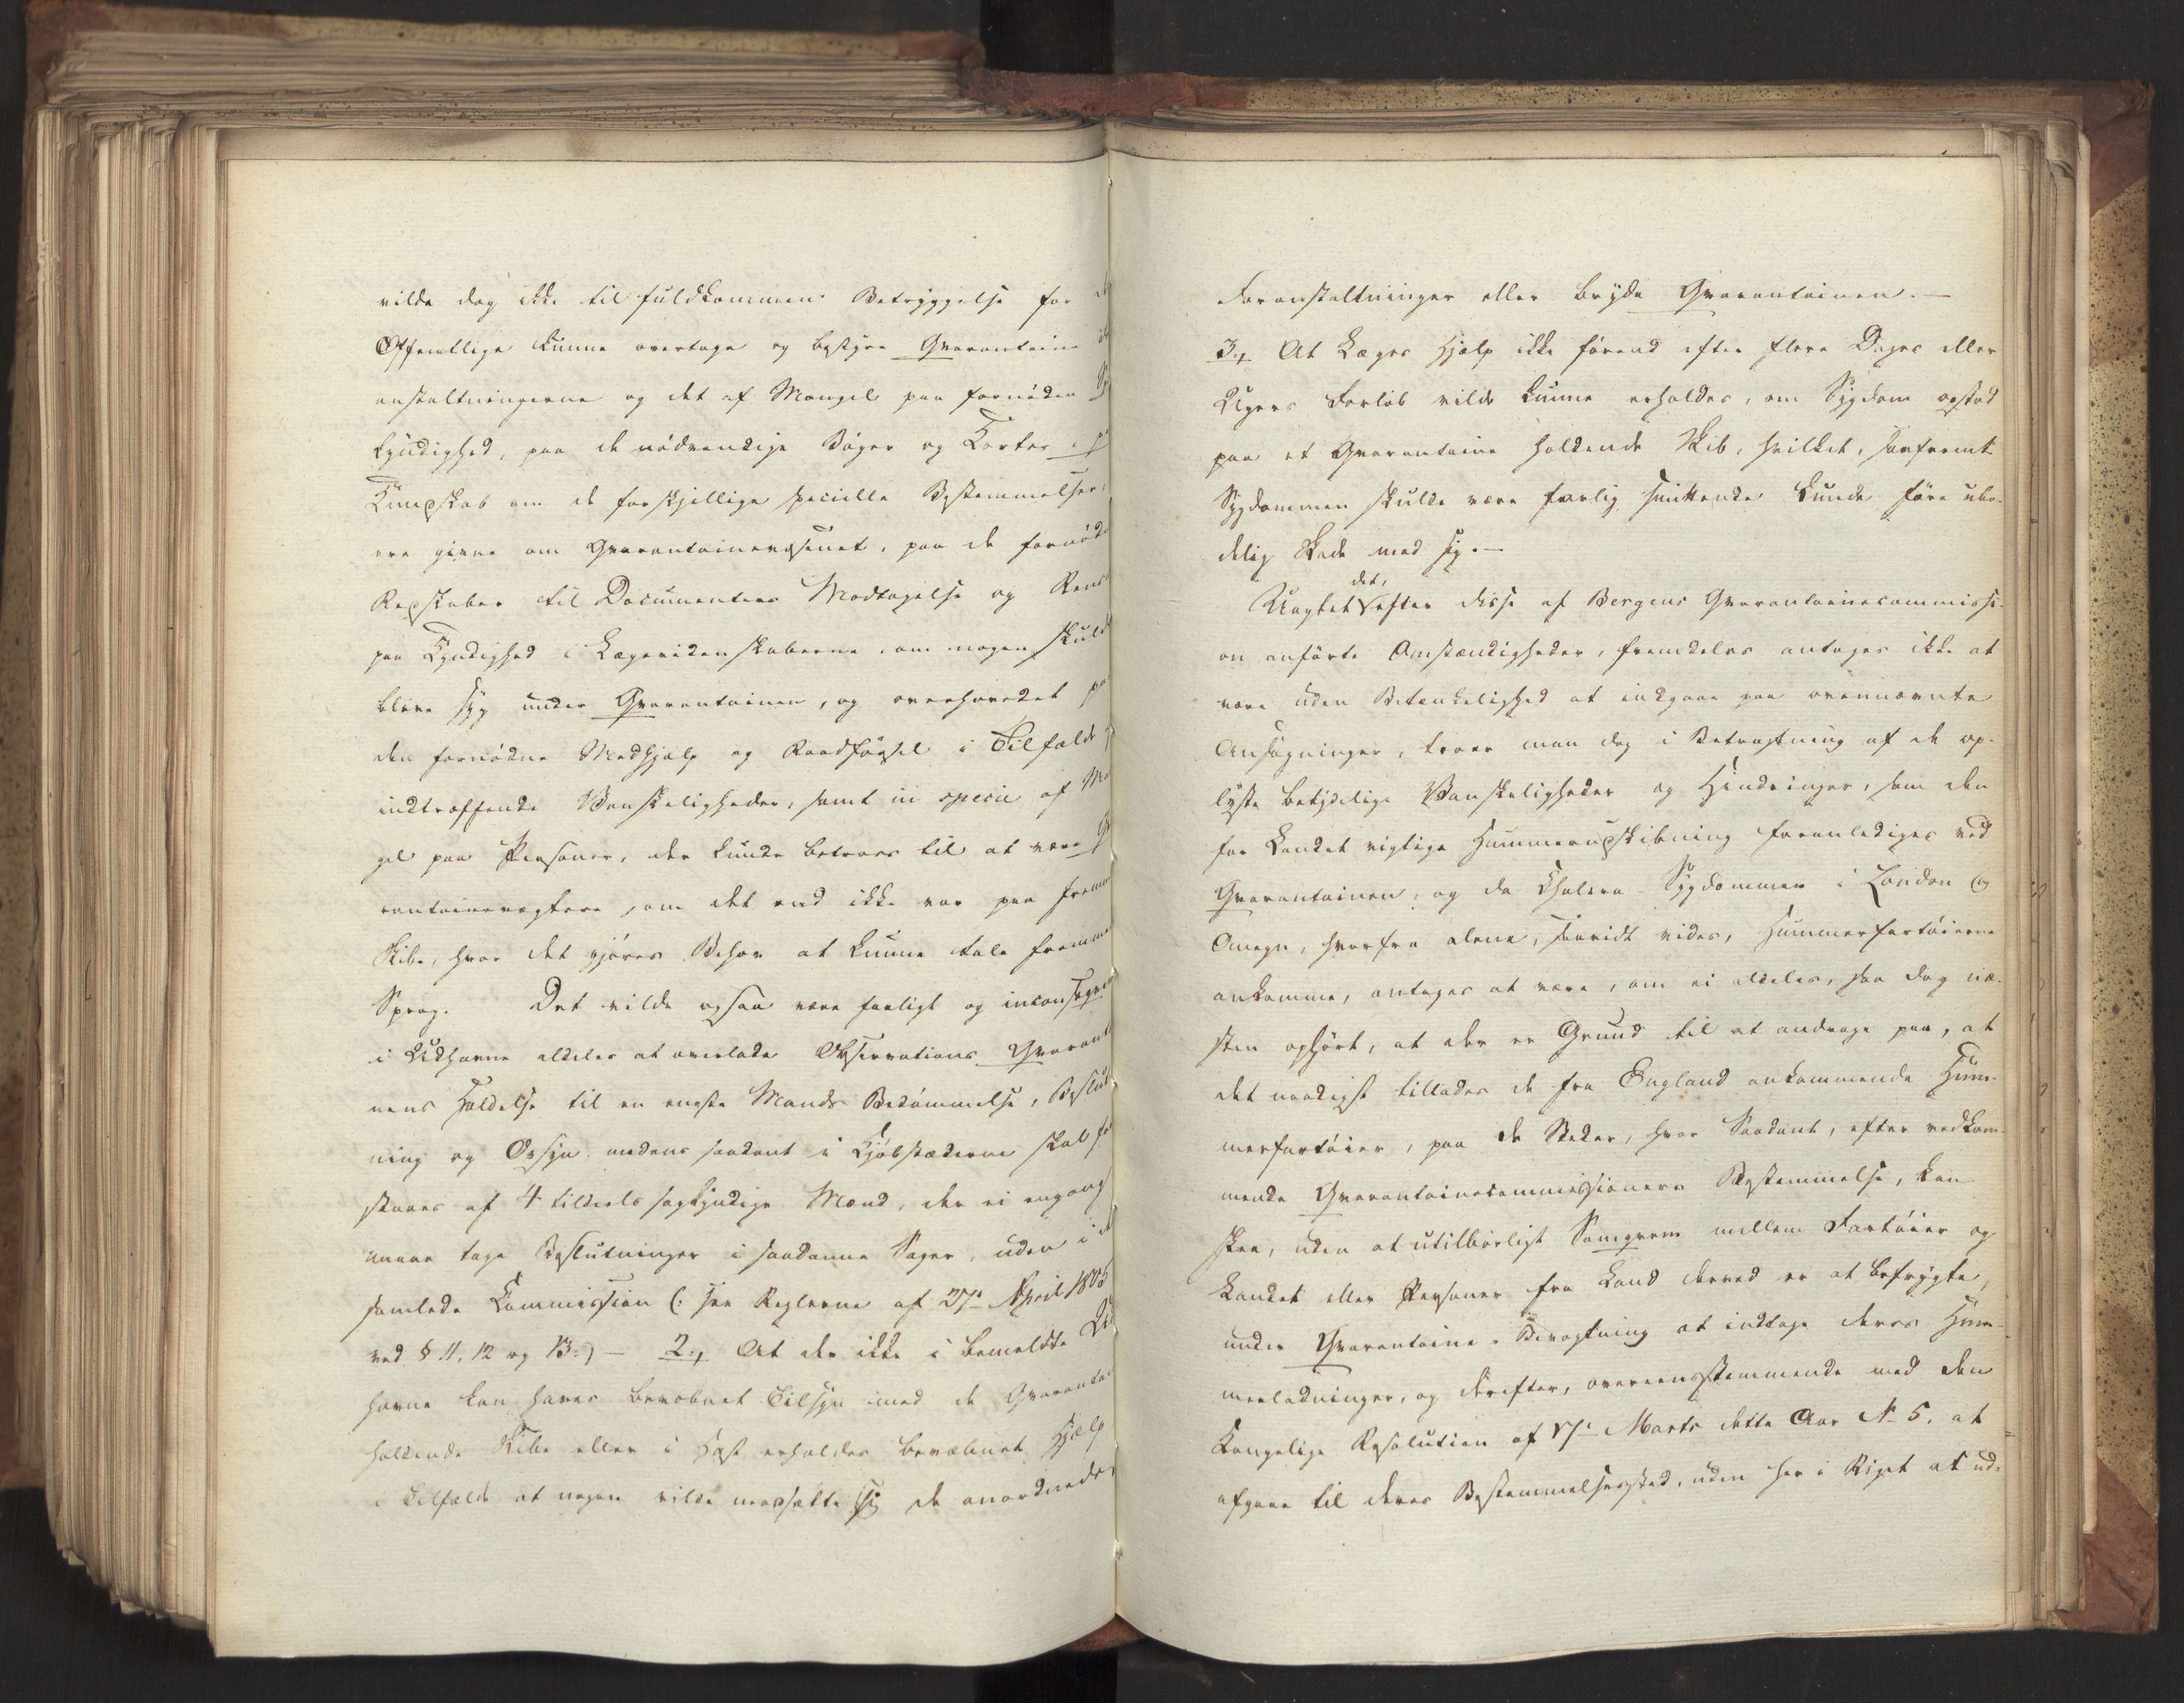 vilde dog ikke til fuldkommen Betryggelse for
Offentlige kunne overtage og bestyre Qvarantaine
anstaltningerne og det af Mangel paa fornöden
kyndighed, paa de nödvendige Böger og Karter,
Kundskab om de forskjellige specielle Bestemmelser,
ere givne om Qvarantainevæsenet, paa de fornöd
Redskaber til Documenters Modtagelse og Rens
paa Kyndighed i Lægevidenskaberne, om nogen skuld
blive syg under Qvarantainen, og overhovedet paa
den fornödne Medhjælp og Raadförsel i Tilfælde
indtræffende Vanskeligheder, samt in specie af Ma
gel paa Personer, der kunde betroes til at være Q
rantainevogtere, om det end ikke var paa fremm
Skibe, hvor det gjöres Behov at kunne tale fremm
Sprog. Det vilde ogsaa være farligt og inconseqve
i Udhavne aldeles at overlade Observations Qvarant
nens Holdelse til en eneste Mands Bedömmelse, Beslut
ning og Opsyn, medens saadant i Kjöbstæderne skal fo
staaes af 4 tildeels sagkyndige Mænd, der ei engang
maae tage Beslutninger i saadanne Sager, uden i
samlede Commission (: see Reglerne af 27de April 1805
ved § 11, 12 og 13:) – 2., At der ikke i bemeldte Ud
havne kan haves bevæbnet Tilsyn med de Qvaranta
holdende Skibe eller i Hast erholdes bevæbnet Hjælp
i Tilfælde at nogen vilde modsætte sig de anordnede
Foranstaltninger eller bryde Qvarantainen. –
3., At Læges Hjælp ikke förend efter flere Dages eller
Ugers Forlöb vilde kunne erholdes, om Sygdom opstod
paa et Qvarantaine holdende Skib, hvilket, saafremt
Sygdommen skulde være farlig smittende kunde före ubo-
delig Skade med sig. –
Uagtet det, efter disse af Bergens Qvarantainecommissi-
on anförte Omstændigheder, fremdeles antages ikke at
være uden Betænkelighed at indgaae paa ovennævnte
Ansögninger, troer man dog i Betragtning af de op-
lyste betydelige Vanskeligheder og Hindringer, som den
for Landet vigtige Hummerudskibning foranlediges ved
Qvarantainen, og da Cholera-Sygdommen i London og
Omegn, hvorfra alene, saavidt vides, Hummerfartöierne
ankomme, antages at være, om ei aldeles, saa dog næ-
sten ophört, at der er Grund til at andrage paa, at
det naadigst tillades de fra England ankommende Hum-
merfartöier, paa de Steder, hvor Saadant, efter vedkom-
mende Qvarantainecommissioners Bestemmelse, kan
skee, uden at utilbörligt Samqvem mellem Fartöier og
Landet eller Personer fra Land derved er at befrygte,
under Qvarantaine-Bevogtning at indtage deres Hum-
merladninger, og derefter, overeensstemmende med den
Kongelige Resolution af 17de Marts dette Aar No 5, at
afgaae til deres Bestemmelsessted, uden her i Riget at ud-